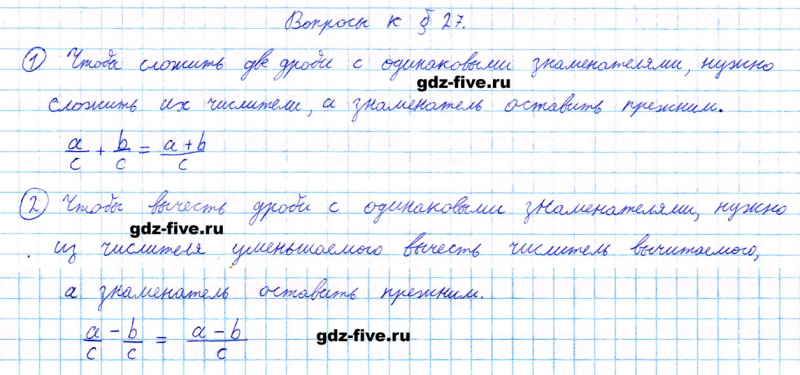 Вопросы к § 27.
① Чтобы сложить две дроби с одинаковыми знаменателями, нужно
gdz-five.ru
сложить их числители, а знаменатель оставить прежним.
a/c + b/c = a+b/c
② Чтобы вычесть дроби с одинаковыми знаменателями, нужно
gdz-five.ru
из числителя уменьшаемого вычесть числитель вычитаемого,
а знаменатель оставить прежним.
a/c - b/c = a-b/c
gdz-five.ru